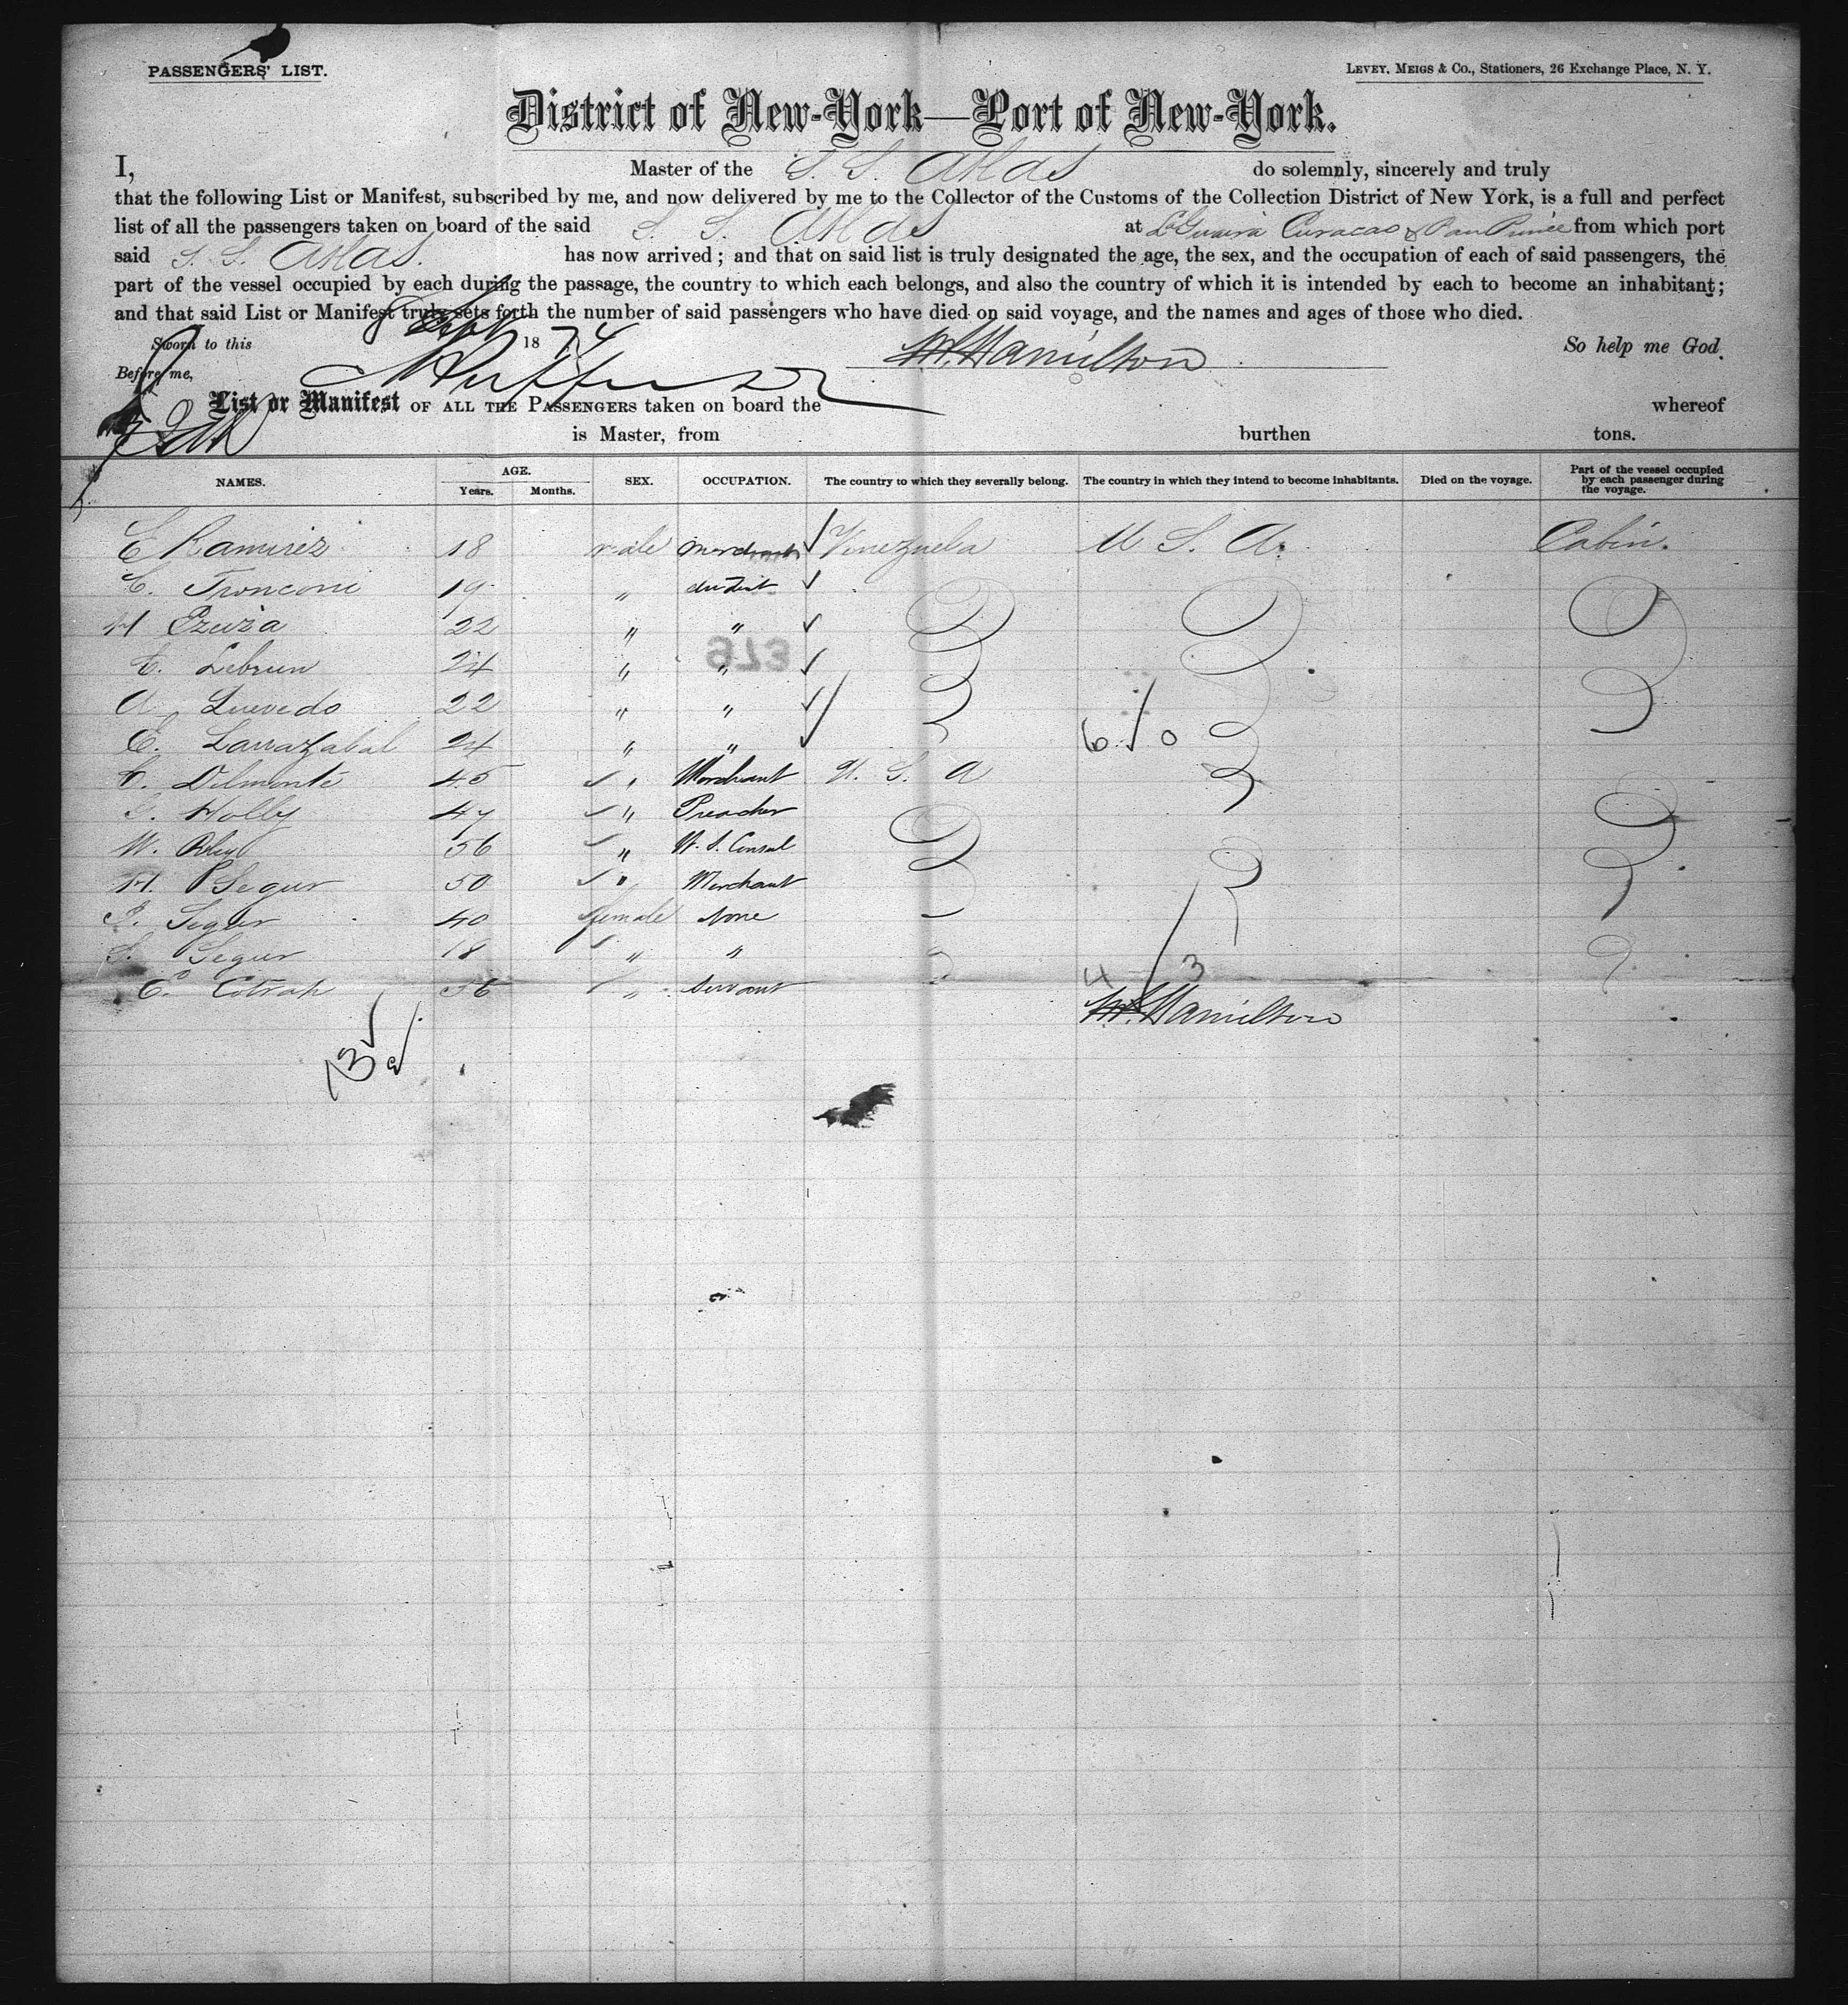 PASSENGERS' LIST.
LEVEY, MEIGS & Co., Stationers, 26 Exchange Place, N. Y.
District of New-York—Port of New-York.
I, Master of the S. S. Atlas do solemnly, sincerely and truly
that the following List or Manifest, subscribed by me, and now delivered by me to the Collector of the Customs of the Collection District of New York, is a full and perfect
list of all the passengers taken on board of the said S. S. Atlas at La Guaira Curacao & Pau Prince from which port
said S. S. Atlas has now arrived ; and that on said list is truly designated the age, the sex, and the occupation of each of said passengers, the
part of the vessel occupied by each during the passage, the country to which each belongs, and also the country of which it is intended by each to become an inhabitant ;
and that said List or Manifest truly sets forth the number of said passengers who have died on said voyage, and the names and ages of those who died.
Sworn to this 1874 W. Hamilton So help me God.
Before me,
List or Manifest OF ALL THE PASSENGERS taken on board the whereof
is Master, from burthen tons.
NAMES. AGE. Years. Months. SEX. OCCUPATION. The country to which they severally belong. The country in which they intend to become inhabitants. Died on the voyage. Part of the vessel occupied by each passenger during the voyage.
E Ramirez 18 male Merchant Venezuela U S A. Cabin.
C. Tronconi 19 "
H 22 " "
C. Lebrun 24 " "
A Quevedo 22 " "
E. Larrazabal 24 " " 6 / 0
C. Delmonte 45 " Merchant U. S. A
Holly 47 " Preacher
W. 56 " U. S. Consul
H. Segur 50 " Merchant
Segur 40 female None
S. Segur 18 " "
E. 56 " Servant 4 / 3
W. Hamilton
13